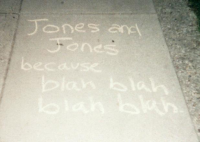 Jones and
Jones
because
blah blah
blah blah